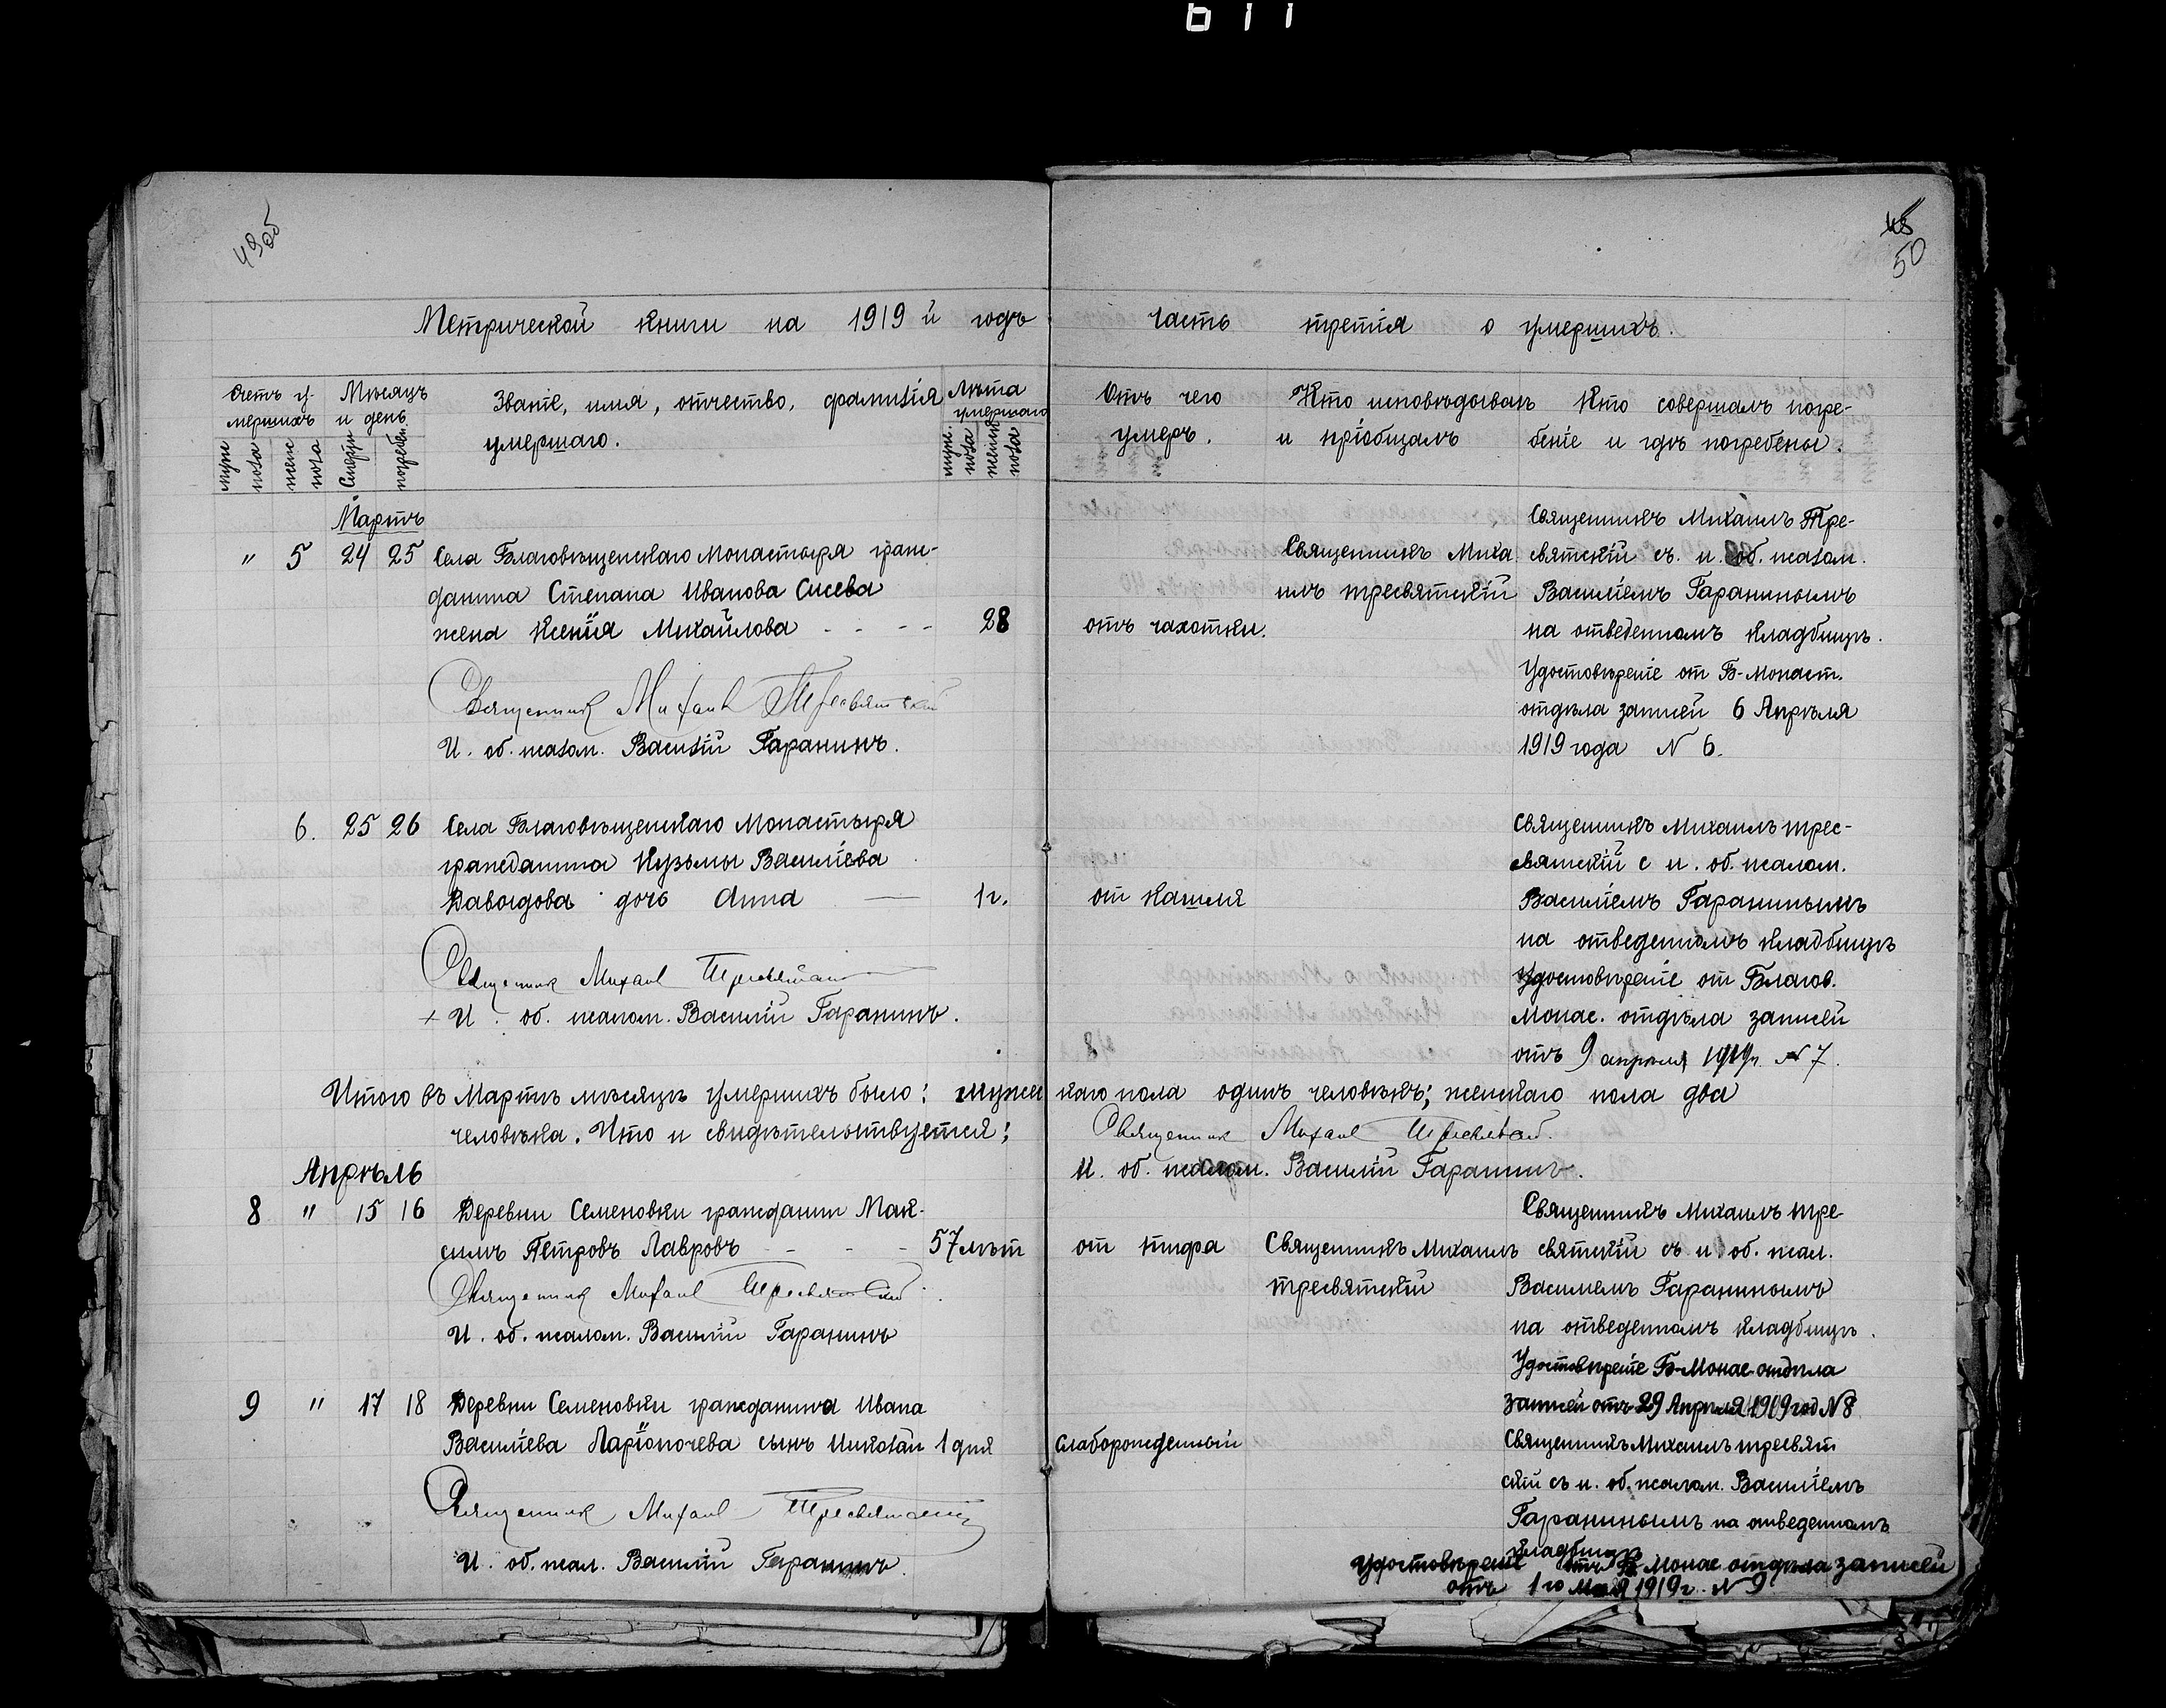 611
49об
48
50
Метрической книги на 1919й годъ часть третія о умершихъ.
Счетъ у-
мершихъ
Мѣсяцъ
и день
Званіе, имя, отчество, фамилія
умершаго.
Лѣта
умершаго
Отъ чего
умеръ.
Кто исповѣдывалъ
и пріобщалъ
Кто совершалъ погре-
беніе и гдѣ погребены.
муже
пола
женс
пола
Смерти
погребен.
муж.
пола
женск
пола
Мартъ
" 5 24 25 Села Благовѣщенскаго Монастыря граж-
данина Степана Иванова Сисева
жена Ксенія Михайлова - - - - 28
отъ чахотки.
Священникъ Миха
илъ Тресвятскій
Священникъ Михаилъ Тре-
святскій съ и. об. псалом.
Василіемъ Гаранинымъ
на отведенномъ кладбищѣ.
Удостовѣреніе от Б-Монаст.
отдѣла записей 6 Апрѣля
1919 года N 6.
Священник Михаил Тресвятский
И. об. псалом. Василій Гаранинъ.
6. 25 26 Села Благовѣщенскаго Монастыря
гражданина Кузьмы Василіева
Давыдова дочь Анна — 1 г.
от кашля
Священникъ Михаилъ Трес-
вятскій с и. об. псалом.
Василіемъ Гаранинымъ
на отведенномъ кладбищѣ
Удостовѣреніе от Благов.
Монас. отдѣла записей
отъ 9 апрѣля 1919г. N 7.
Священник Михаил Тресвятский
+ И. об. псалом. Василій Гаранинъ.
Итого въ Мартѣ мѣсяцѣ умершихъ было: мужескаго пола одинъ человѣкъ; женскаго пола два
человѣка. Что и свидѣтельствуется: Священник Михаил Тресвятский.
И. об. псалом. Василій Гаранинъ.
Апрѣль
8 " 15 16 Деревни Семеновки гражданин Мак-
симъ Петровъ Лавровъ - - - 57 лѣт
от тифа
Священникъ Михаилъ
Тресвятскій
Священникъ Михаилъ Тре-
святскій съ и. об. псал.
Василіемъ Гаранинымъ
на отведенномъ кладбищѣ.
Удостовѣреніе Б-Монас отдѣла
Записей отъ 29 Апрѣля 1919 год N 8
Священник Михаил Тресвятский
И. об. псалом. Василій Гаранинъ
9 " 17 18 Деревни Семеновки гражданина Ивана
Василіева Ларіоночева сынъ Николай 1 дня
слаборожденный
Священникъ Михаилъ Тресвят
скій съ и. об. псалом. Василіемъ
Гаранинымъ на отведенномъ
кладбищѣ
Удостовѣреніе отъ Б Монас отдѣла записей
отъ 1го Мая 1919г. N 9
Священник Михаил Тресвятский
И. об. псал. Василій Гаранинъ.